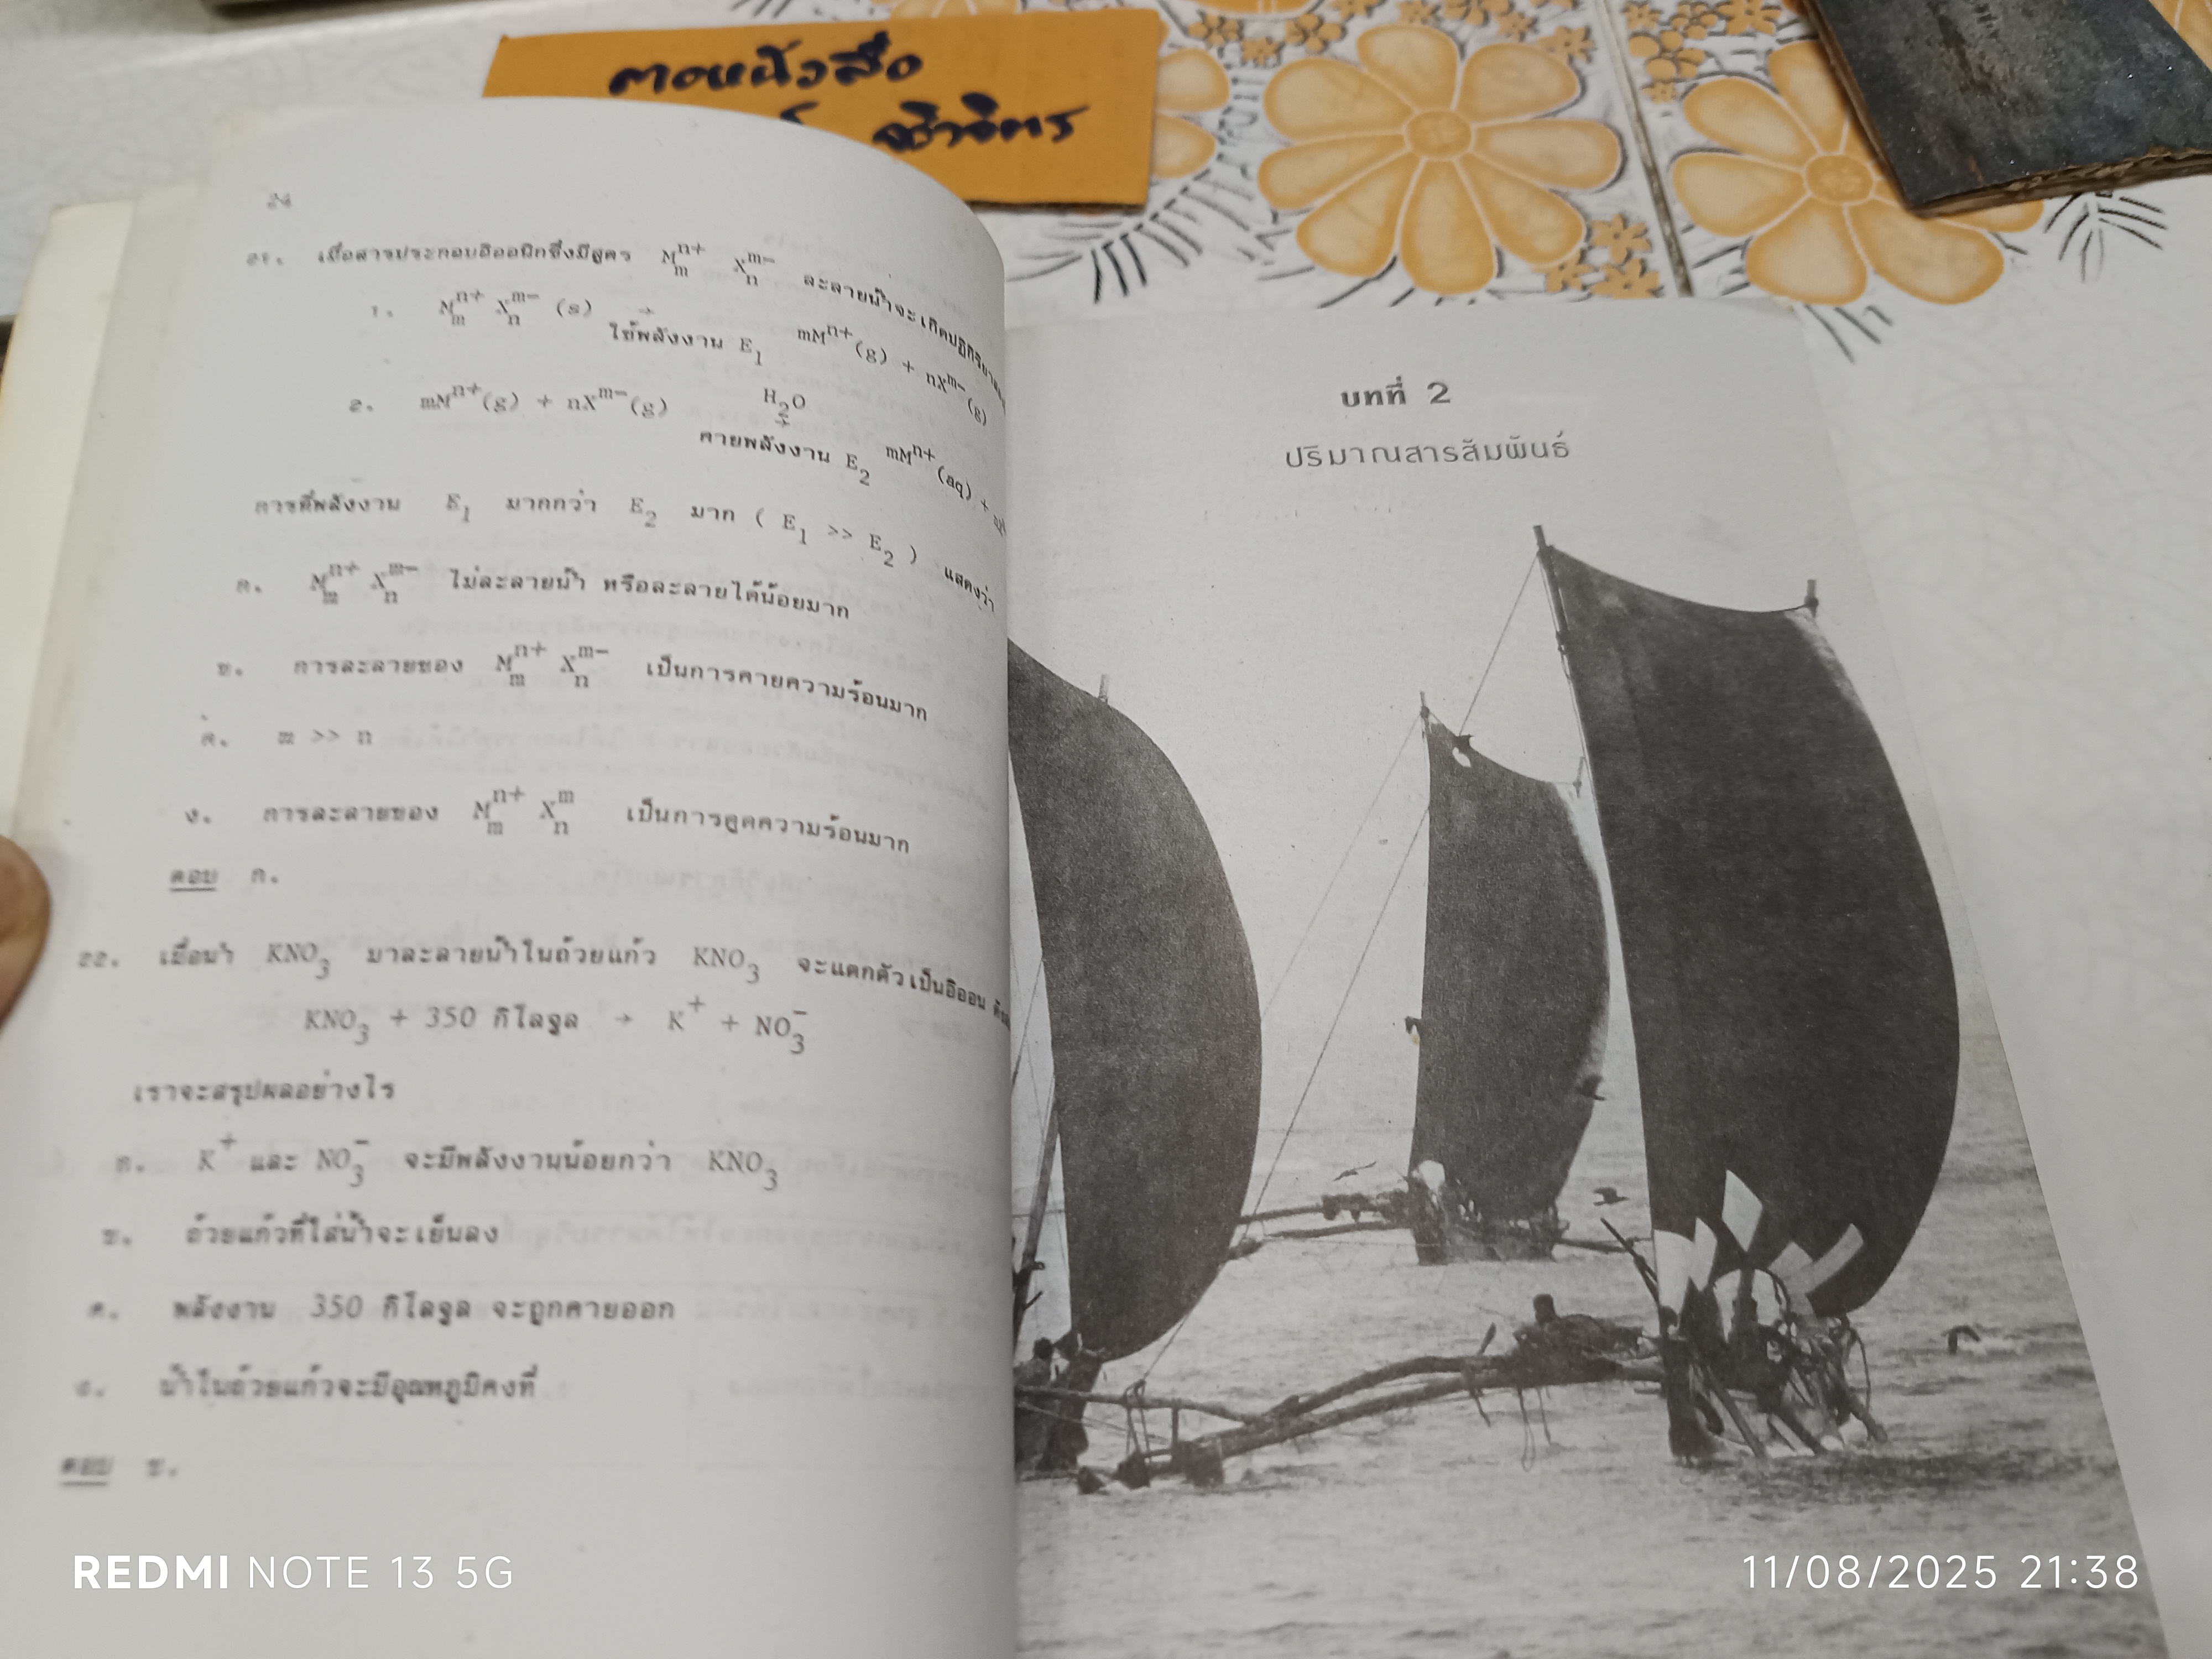 ตาดหนังสือ
จิวจิตร
24
๒๑. เมื่อสารประกอบอิออนิกซึ่งมีสูตร M_m^{n+} X_n^{m-} ละลายน้ำจะเกิดปฏิกิริยา
๑. M_m^{n+} X_n^{m-} (s) → ใช้พลังงาน E_1 mM^{n+}(g) + nX^{m-}(g)
๒. mM^{n+}(g) + nX^{m-}(g) H_2O → คายพลังงาน E_2 mM^{n+}(aq) +
การที่พลังงาน E_1 มากกว่า E_2 มาก ( E_1 >> E_2 ) แสดงว่า
ก. M_m^{n+} X_n^{m-} ไม่ละลายน้ำ หรือละลายได้น้อยมาก
ข. การละลายของ M_m^{n+} X_n^{m-} เป็นการคายความร้อนมาก
ค. m >> n
ง. การละลายของ M_m^{n+} X_n^m เป็นการดูดความร้อนมาก
ตอบ ก.
๒๒. เมื่อนำ KNO_3 มาละลายน้ำในถ้วยแก้ว KNO_3 จะแตกตัวเป็นอิออน
KNO_3 + 350 กิโลจูล → K^+ + NO_3^-
เราจะสรุปผลอย่างไร
ก. K^+ และ NO_3^- จะมีพลังงานน้อยกว่า KNO_3
ข. ถ้วยแก้วที่ใส่น้ำจะเย็นลง
ค. พลังงาน 350 กิโลจูล จะถูกคายออก
ง. น้ำในถ้วยแก้วจะมีอุณหภูมิคงที่
ตอบ ข.
บทที่ 2
ปริมาณสารสัมพันธ์
REDMI NOTE 13 5G
11/08/2025 21:38